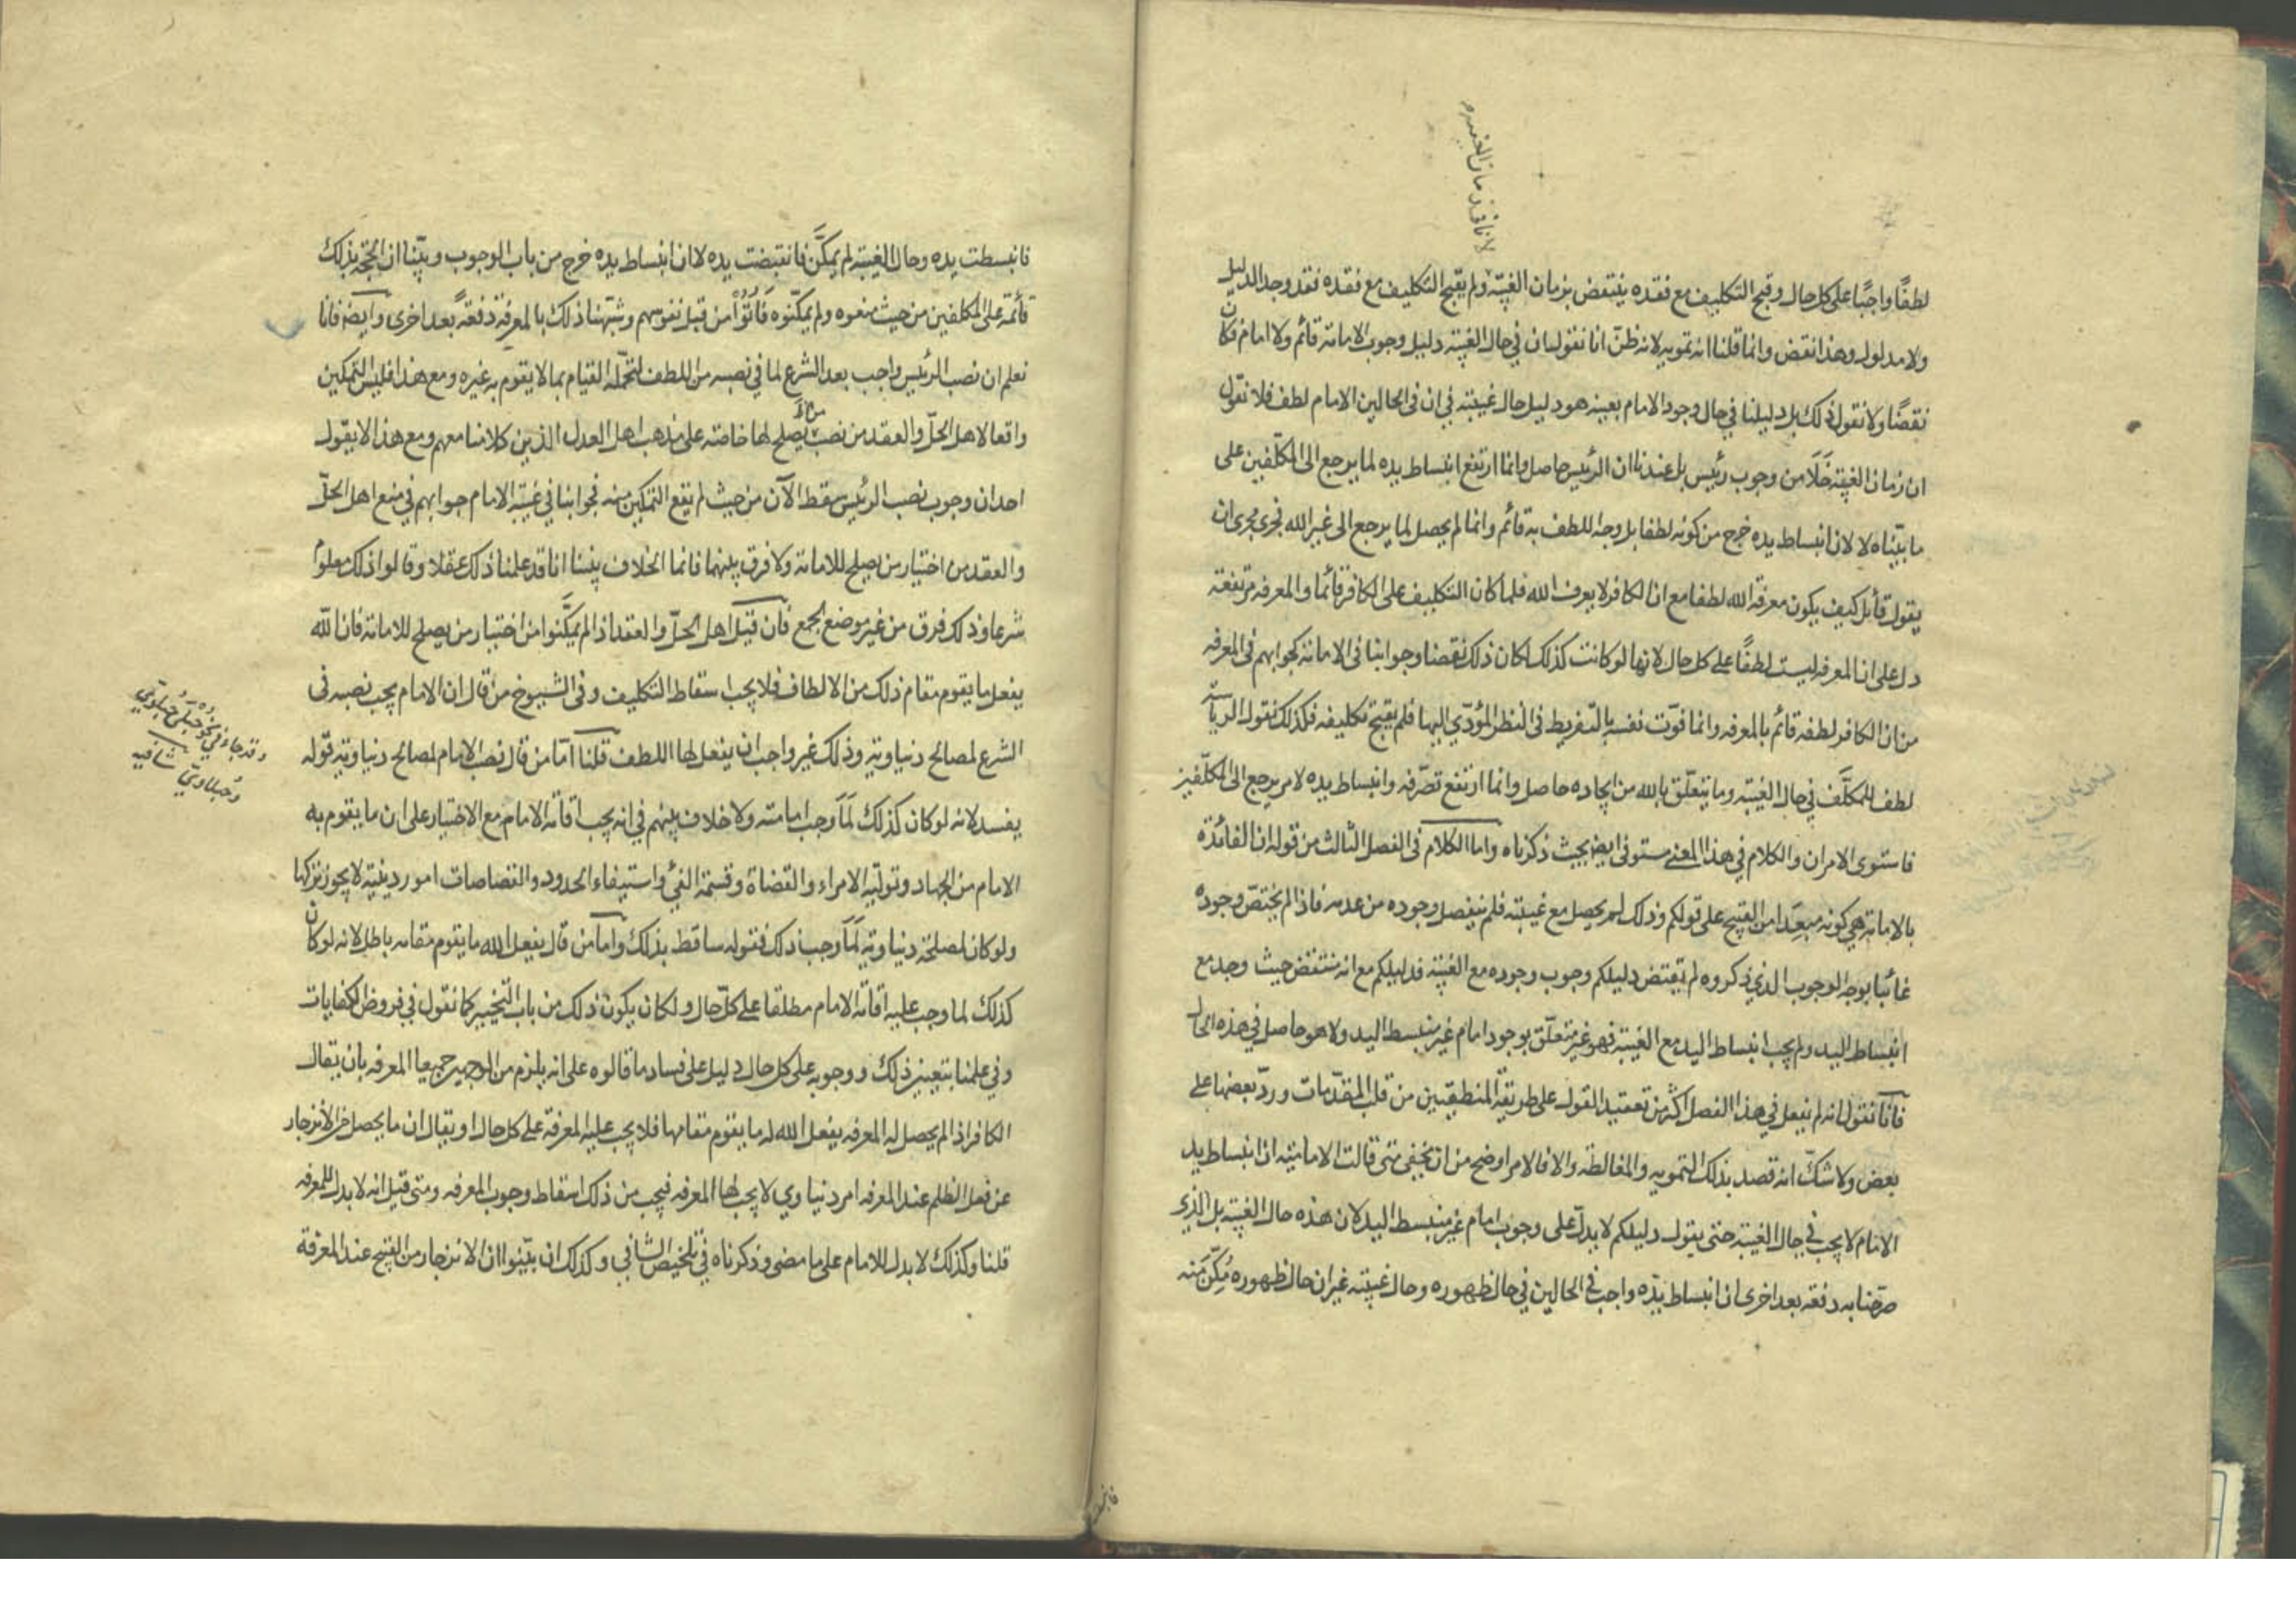 لانا فى زمان الغيبة
لطفًا واجبًا على كل حال وقبح التكليف مع فقده ينتقض بزمان الغيبة ولم يقبح التكليف مع فقده فقد وجد الدليل
ولا مدلول وهذا نقض وانما قلنا انه تمويه لانه ظنّ انا نقول ان في حال الغيبة دليل وجوب الامامة قائم ولا امام فكان
نقضًا ولا نقول ذلك بل دليلنا في حال وجود الامام بعينه هو دليل حال غيبته في ان فى الحالين الامام لطف فلا نقول
ان زمان الغيبة خَلَا من وجوب رئيس بل عندنا ان الرئيس حاصل وانما ارتفع انبساط يده لما يرجع الى المكلّفين على
ما بيّناه لا لان انبساط يده خرج من كونه لطفا بل وجه اللطف به قائم وانما لم يحصل لما يرجع الى غير الله فجرى مجرى ان
يقول قائل كيف يكون معرفة الله لطفا مع ان الكافر لا يعرف الله فلما كان التكليف على الكافر قائما والمعرفه مرتفعة
دل على ان المعرفه ليست لطفًا على كل حال لانها لو كانت كذلك لكان ذلك نقضا وجوابنا فى الامامة كجوابهم فى المعرفه
من ان الكافر لطفه قائم بالمعرفه وانما فوّت نفسه بالتفريط فى النظر المؤدّي اليها فلم يقبح تكليفه فكذلك نقول الرياسة
لطف للمكلّف في حال الغيبة وما يتعلّق بالله من ايجاده حاصل وانما ارتفع تصرّفه وانبساط يده لامر يرجع الى المكلّفين
فاستوى الامران والكلام في هذا المعنى مستوفى ايضا بحيث ذكرناه واما الكلام فى الفصل الثالث من قوله ان الفائدة
بالامامة هي كونه مبعّدا من القبيح على قولكم وذلك لم يحصل مع غيبته فلم ينفصل وجوده من عدمه فاذا لم يختصّ وجوده
غائبا بوجه الوجوب الذي ذكروه لم يقتض دليلكم وجوب وجوده مع الغيبة فدليلكم مع انه منتقض حيث وجد مع
انبساط اليد ولم يجب انبساط اليد مع الغيبة فهو غير متعلّق بوجود امام غير منبسط اليد ولا هو حاصل في هذه الحال
فانا نقول انه لم يفعل في هذا الفصل اكثر من تعقيد القول على طريقة المنطقيين من قلب المقدّمات وردّ بعضها على
بعض ولا شكّ انه قصد بذلك التمويه والمغالطه والا فالامر اوضح من ان يخفى متى قالت الاماميّه ان انبساط يد
الامام لا يجب في حال الغيبة حتى يقول دليلكم لا يدلّ على وجوب امام غير منبسط اليد لان هذه حال الغيبة بل الذي
صرّحنا به دفعه بعد اخرى ان انبساط يدّه واجب في الحالين في حال ظهوره وحال غيبته غير ان حال ظهوره مُكِّنَ مَنه
فانبسطت يده وحال الغيبة لم يمكَّن فانقبضت يده لا ان انبساط يده خرج من باب الوجوب وبيّنا ان الحجّة بذلك
قائمة على المكلفين من حيث منعوه ولم يمكّنوه فَاُتُوْا من قبل نفوسهم وشبّهنا ذلك بالمعرفة دفعةً بعد اخرى وايضا فانا
نعلم ان نصب الرئيس واجب بعد الشرع لما في نصبه من اللطف لتحمّله القيام بما لا يقوم به غيره ومع هذا فليس التمكين
واقعا لاهل الحلّ والعقد من نصب من يصلح لها خاصّة على مذهب اهل العدل الذين كلامنا معهم ومع هذا لا يقول
احد ان وجوب نصب الرئيس سقط الآن من حيث لم يقع التمكين منه فجوابنا في غيبة الامام جوابهم في منع اهل الحلّ
والعقد من اختيار من يصلح للامامة ولا فرق بينهما فانما الخلاف بيننا انا قد علمنا ذلك عقلا وقالوا ذلك معلوم
شرعا وذلك فرق من غير موضع الجمع فان قيل اهل الحلّ والعقد اذا لم يمكَّنوا من اختيار من يصلح للامامة فان الله
يفعل ما يقوم مقام ذلك من الالطاف فلا يجب اسقاط التكليف وفى الشيوخ من قال ان الامام يجب نصبه فى
الشرع لمصالح دنياويّة وذلك غير واجب ان يفعل لها اللطف قلنا امّا من قال نصب الامام لمصالح دنياويّة قوله
يفسد لانه لو كان كذلك لَمَا وجب امامته ولا خلاف بينهم في انه يجب اقامة الامام مع الاختيار على ان ما يقوم به
الامام من الجهاد وتولية الامراء والقضاة وقسمة الفيء واستيفاء الحدود والقصاصات امور دينيّة لا يجوز تركها
ولو كان لمصلحة دنياويّة لَمَا وجب ذلك فقوله ساقط بذلك واما من قال يفعل الله ما يقوم مقامه باطل لانه لو كان
كذلك لما وجب عليه اقامة الامام مطلقا على كلّ حال ولكان يكون ذلك من باب التخيير كما نقول في فروض الكفايات
وفي علمنا بتعيين ذلك ووجوبه على كل حال دليل على فساد ما قالوه على انه يلزم من الوجهين جميعا المعرفه بان يقال
الكافر اذا لم يحصل له المعرفه يفعل الله له ما يقوم مقامها فلا يجب عليه المعرفة على كل حال او يقال ان ما يحصل من الانزجار
عن فعل الظلم عند المعرفه امر دنياوي لا يجب لها المعرفه فيجب من ذلك اسقاط وجوب المعرفه ومتى قيل انه لا بدل للمعرفه
قلنا وكذلك لا بدل للامام على ما مضى وذكرناه في تلخيص الشافي وكذلك ان بيّنوا ان الانزجار من القبيح عند المعرفة
وقد جاء في نحو حُبْلَى حُبْلَوِيّ
وحُبْلاويّ شافيه